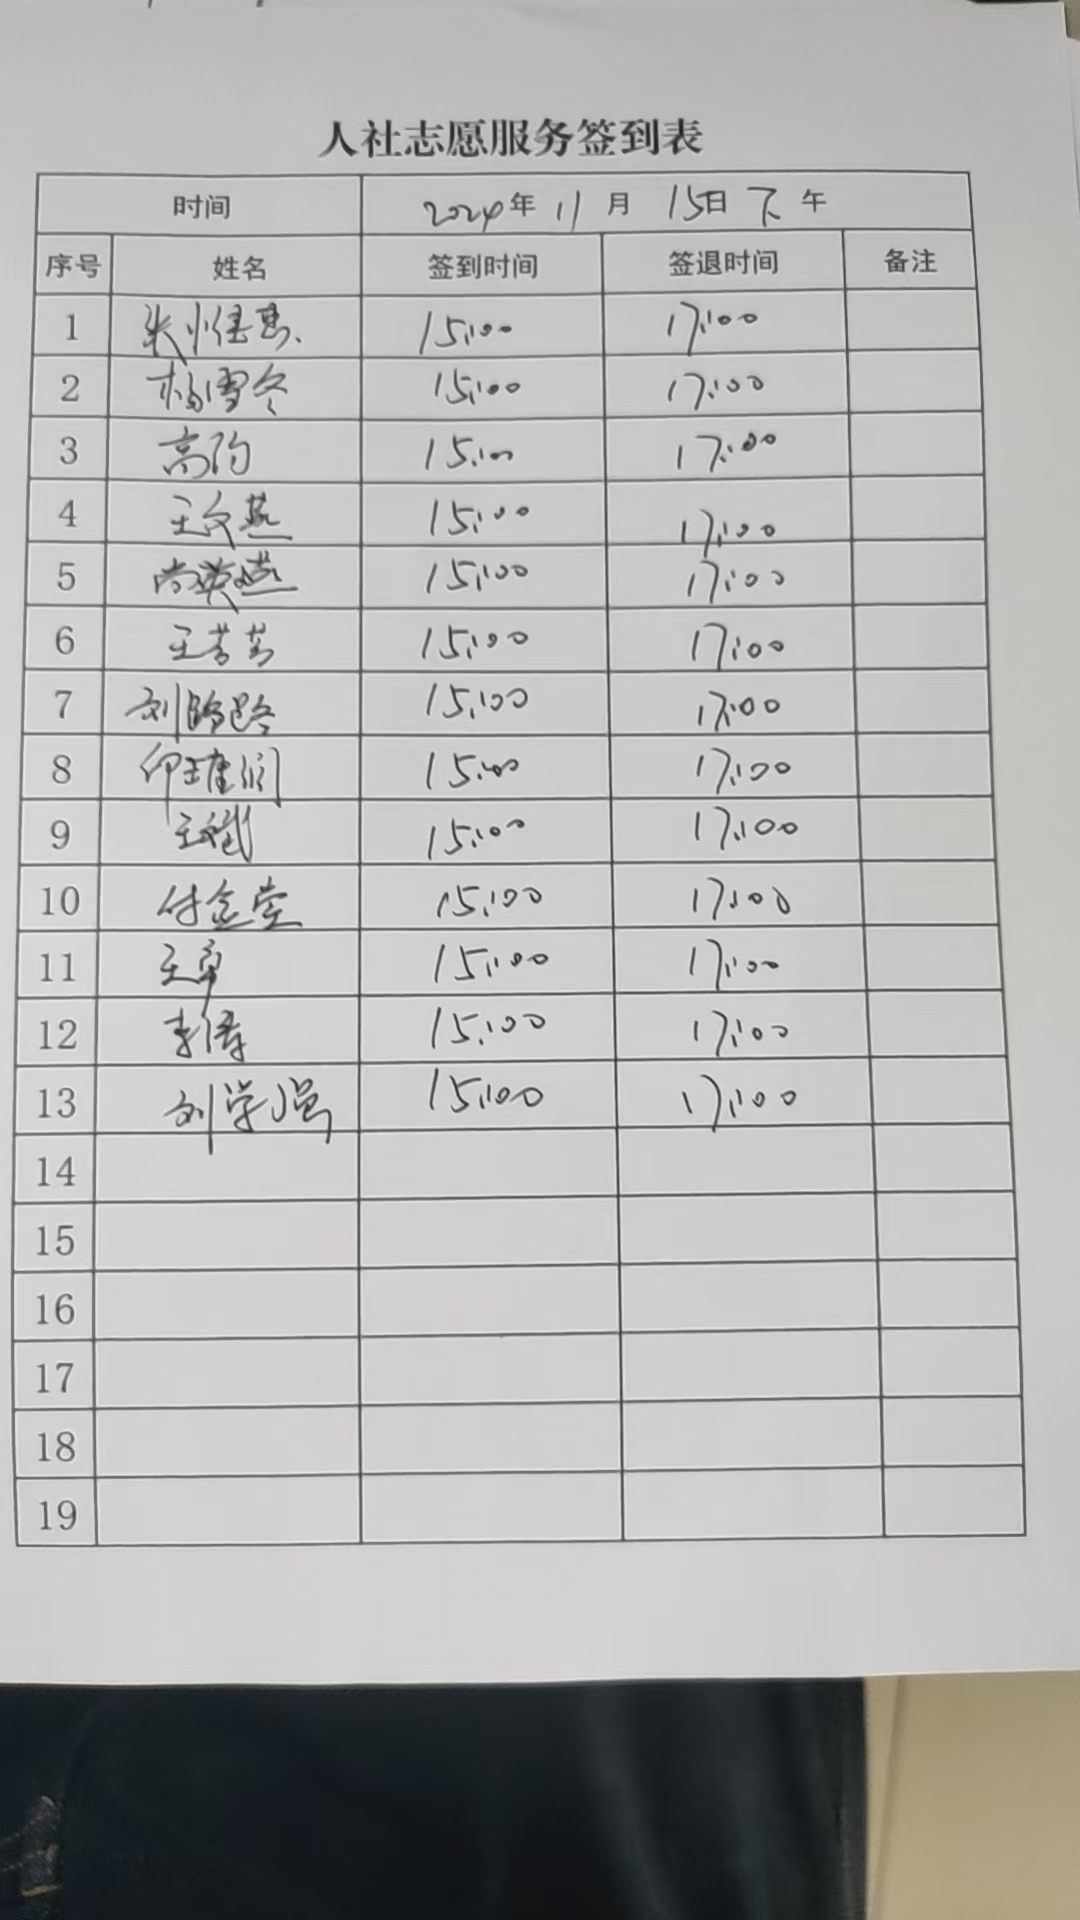 人社志愿服务签到表
时间 2024年 11 月 15日 下 午
序号 姓名 签到时间 签退时间 备注
1 15:00 17:00
2 杨雪冬 15:00 17:00
3 高 15:00 17:00
4 王文燕 15:00 17:00
5 尚英燕 15:00 17:00
6 王芳芳 15:00 17:00
7 刘路路 15:00 17:00
8 15:00 17:00
9 王斌 15:00 17:00
10 付金堂 15:00 17:00
11 王卓 15:00 17:00
12 李倩 15:00 17:00
13 刘学强 15:00 17:00
14
15
16
17
18
19